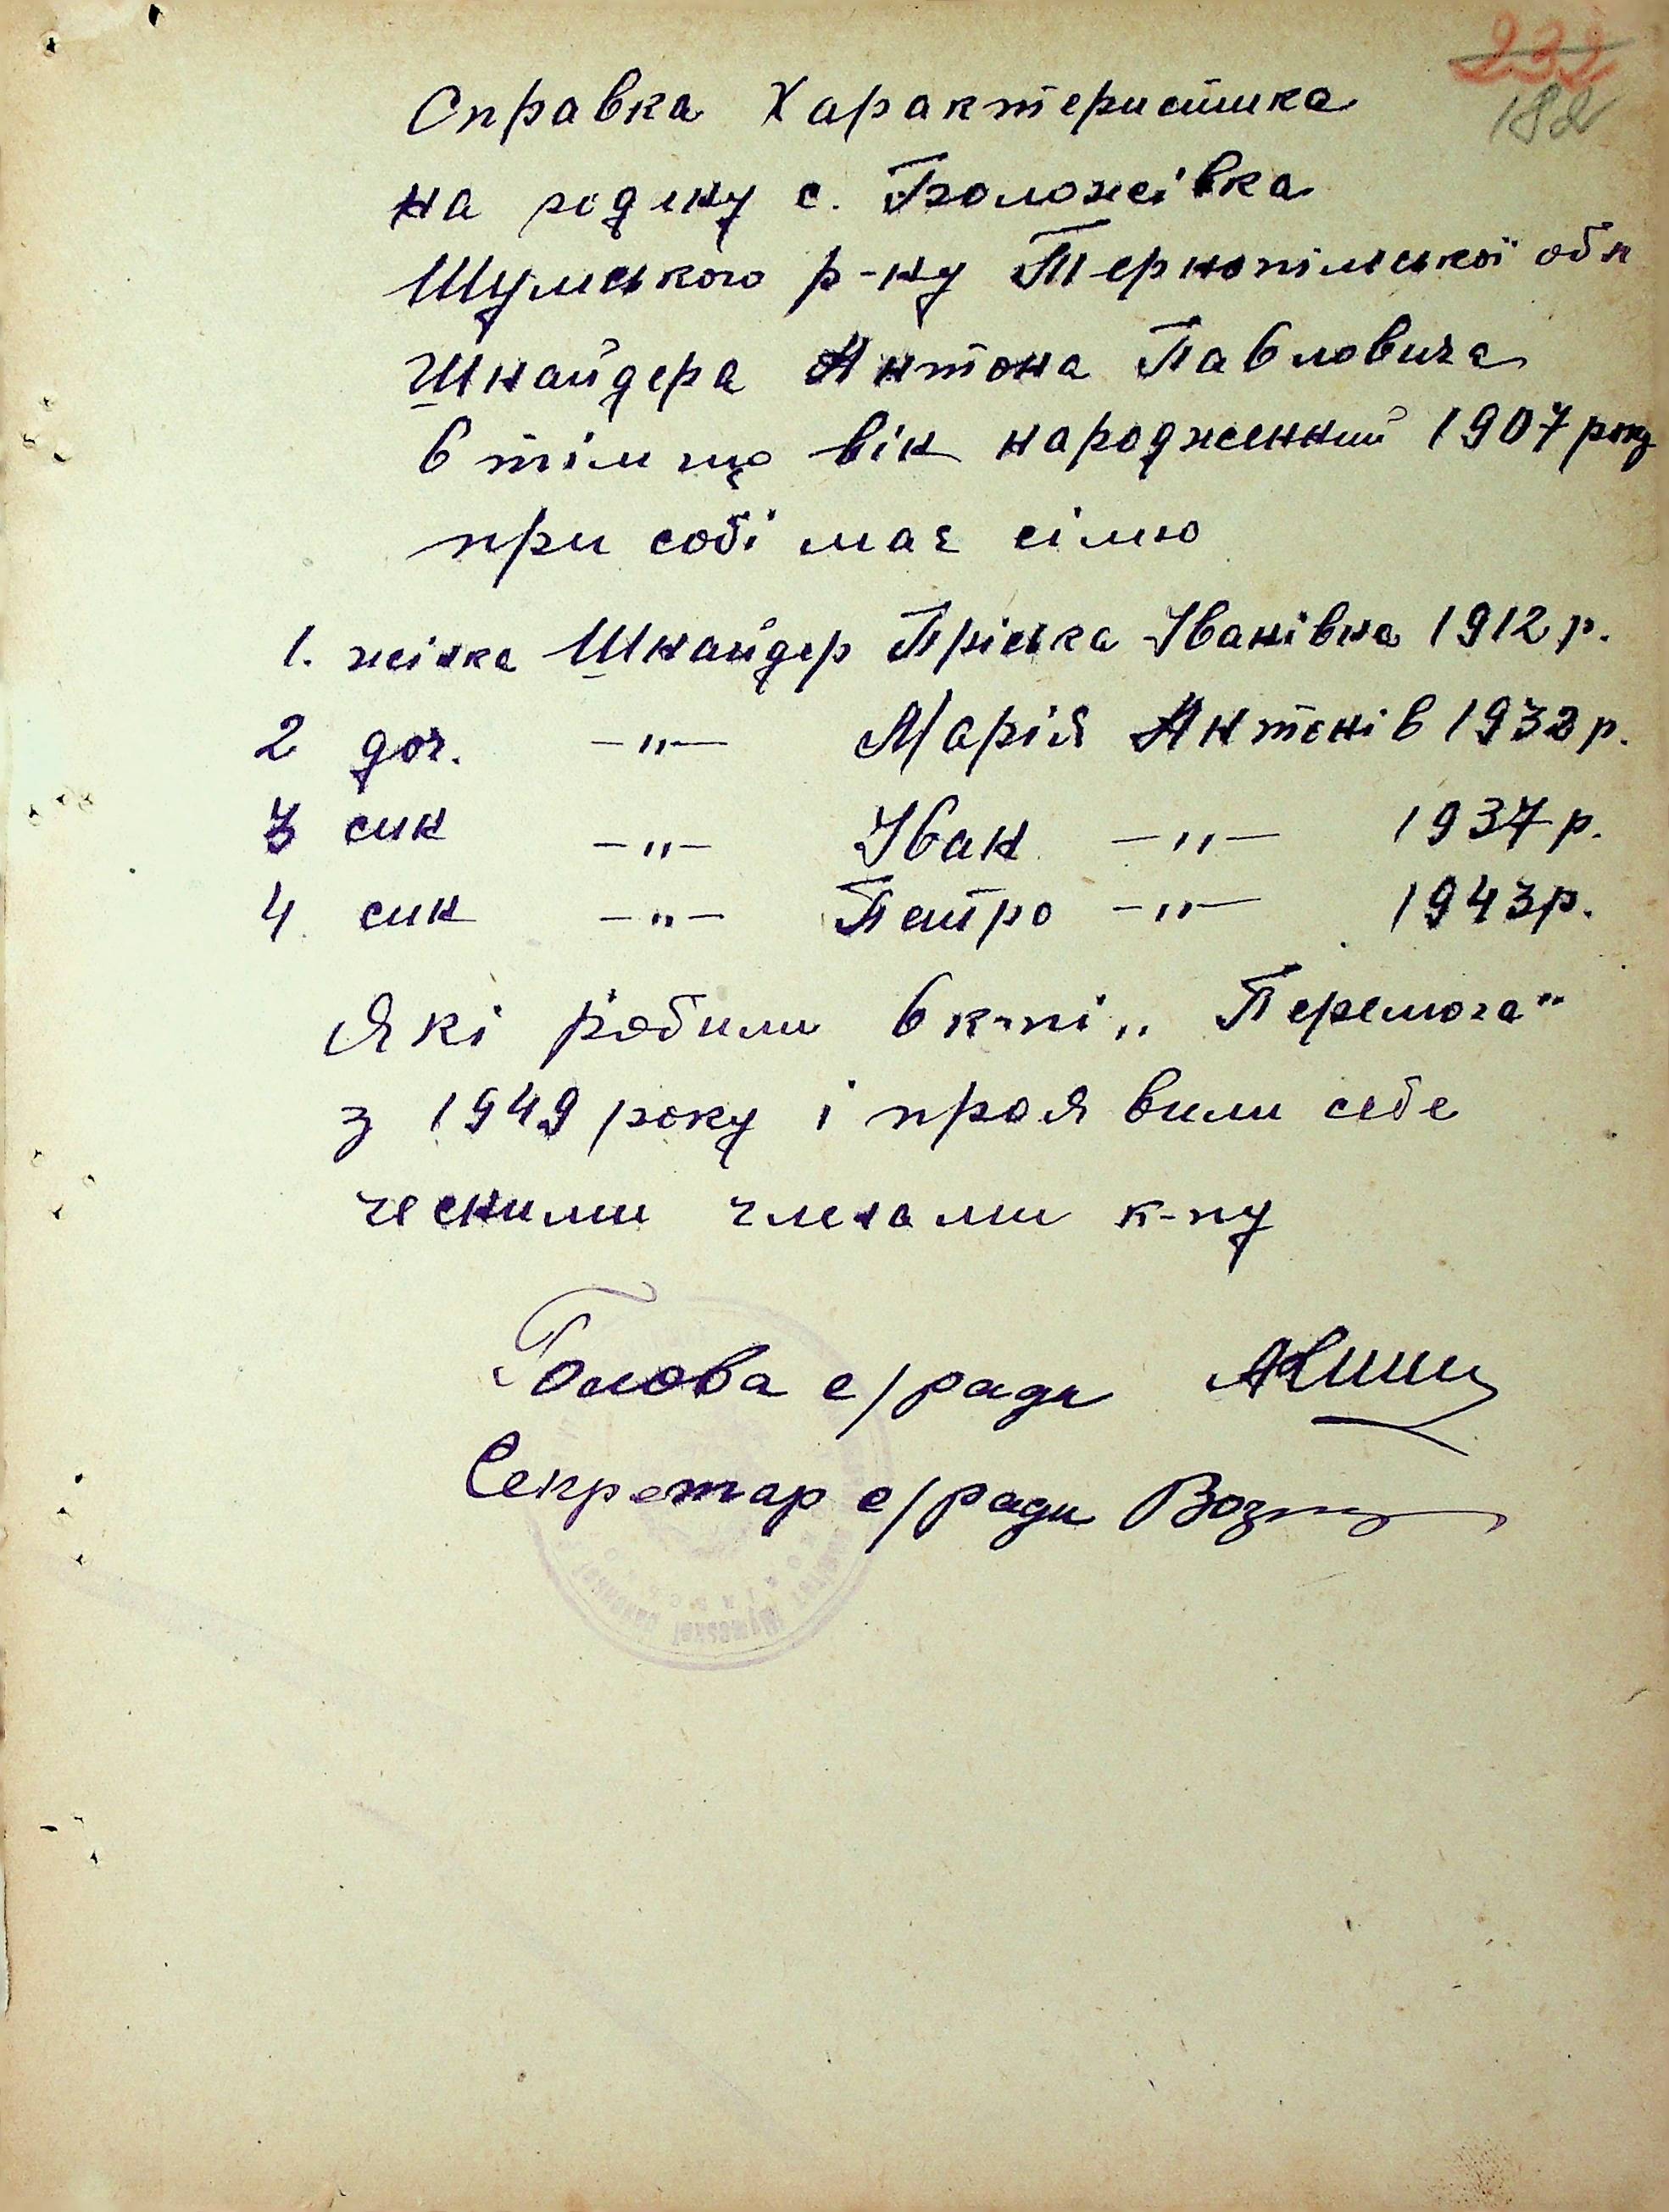 232
182
Справка Характеристика
на родину с. Боложівка
Шумського р-ну Тернопільської обл
Шнайдера Антона Павловича
в тім що він народженний 1907 року
при собі має сімю
1. жінка Шнайдер Пріська Іванівна 1912 р.
2 доч. -"- Марія Антонів 1932 р.
3 син -"- Іван -"- 1937 р.
4 син -"- Петро -"- 1943 р.
Які робили в к-пі „Перемога"
з 1949 року і проявили себе
чесними членами к-пу
Голова с/ради
Секретар с/ради
Шумської